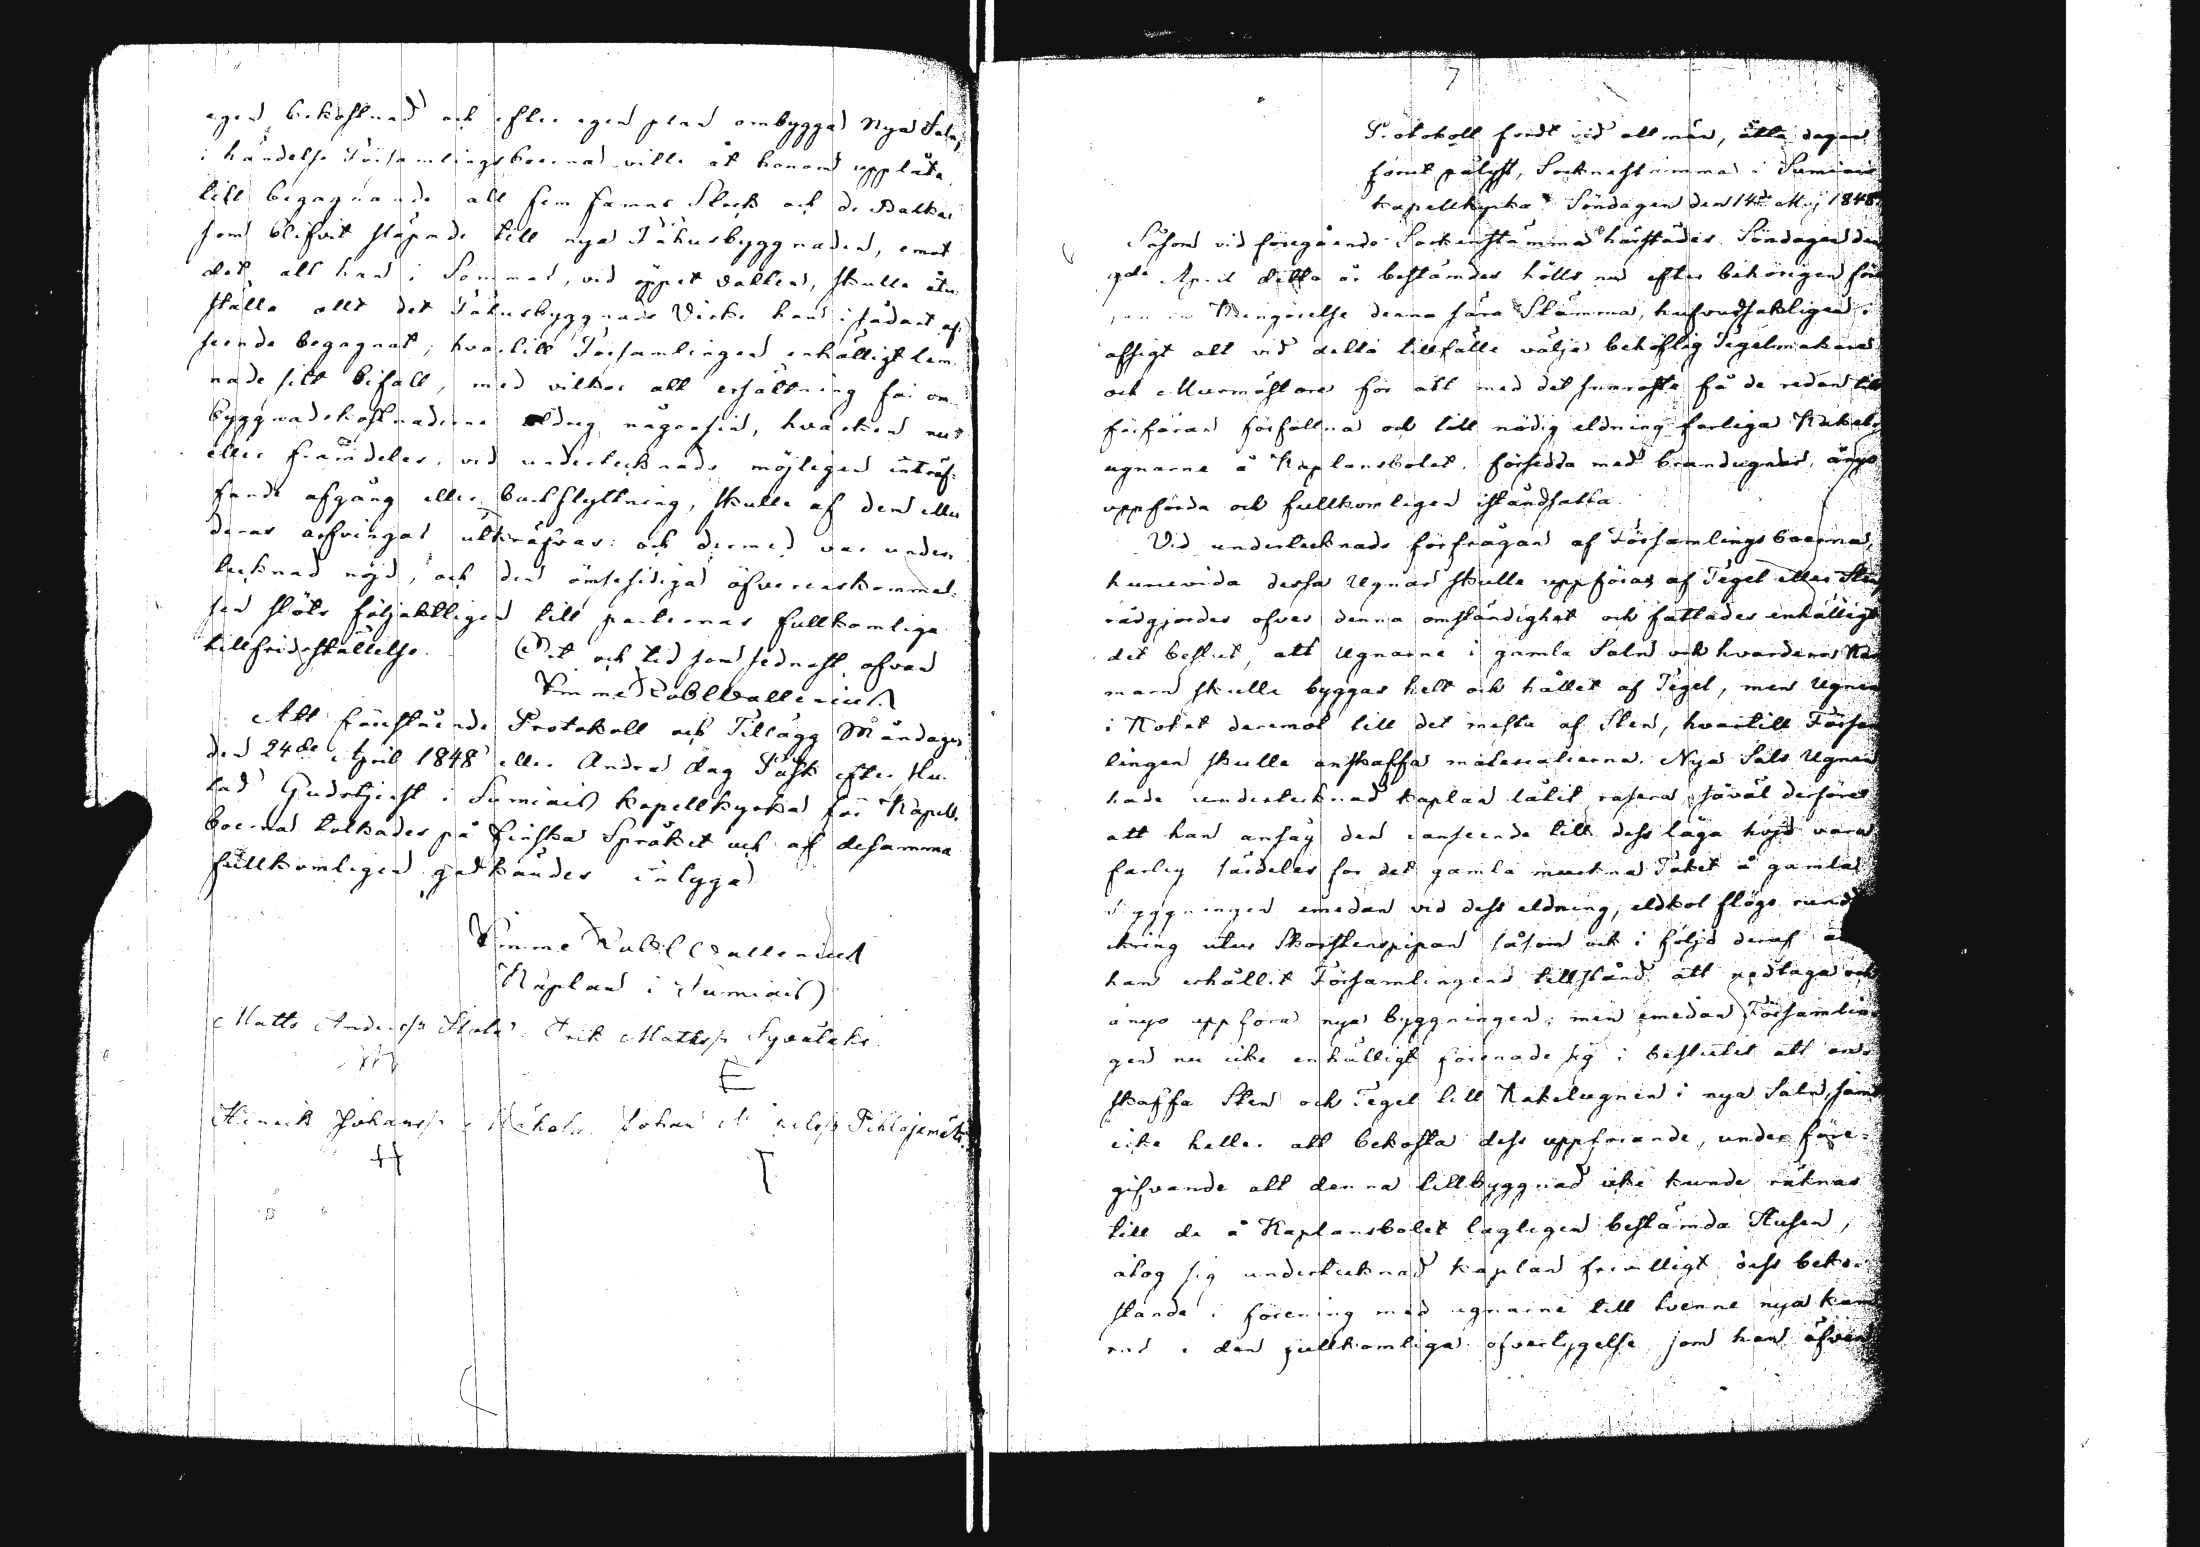 egen bekostnad och efter egen plan ombygga Nya Saln,
i händelse Församlingsboerna ville åt honom upplåta
till begagnande all fem famns Stock och de Balkar
som blifvit släpade till nya Fähusbyggnaden, emot
det att han i Sommar, vid öppet vatten, skulle åter
ställa allt det Fähusbyggnads Virke han i sådant af-
seende begagnat; hvartill Församlingen enhälligt lem-
nade sitt bifall, med vilkor att ersättning för om-
byggnadskostnaderne aldrig någonsin, hvarken nu
eller framdeles, vid undertecknads möjligen inträf-
fande afgång eller bortflyttning, skulle af den eller
deras arfvingar utkräfvas: och dermed var under-
tecknad nöjd, och den ömsesidiga öfverenskommel-
sen slöts följaktligen till parternas fullkomliga
tillfridsställelse. Ort och tid som sednast ofvan
Att förestående Protokoll och Tillägg Måndagen
den 24de April 1848 eller Andra dag Påsk efter slu-
tad Gudstjenst i Sumiais kapellkyrka för Kapell-
boerna tolkades på Finska Språket och af desamma
fullkomligen godkändes intyga
Kaplan i Sumiais
Matts Anderss Erik Mattss Syvälaks
E
Henrik Johanss Johan
H T
7
Protokoll fördt vid allmän, åtta dagar
förut pålyst, Socknestämma i Sumiais
kapellkyrka Söndagen den 14de Maj 1848
Såsom vid föregående Sockenstämma härstädes Söndagen den
9de April detta år bestämdes hölls nu efter behörigen för
kungörelse denna Stämma, hufvudsakligen i
afsigt att vid detta tillfälle välja behöflig Tegelmakare
och Murmästare för att med det snaraste få de redan till
förfäran förfallna och till nödig eldning farliga Kakel-
ugnarne å Kaplansbolet, försedda med brandugnar, ånyo
uppförda och fullkomligen iståndsatta.
Vid undertecknads förfrågan af Församlings boerna,
huruvida dessa Ugnar skulle uppföras af Tegel eller Sten
rådgjordes öfver denna omständighet och fattades enhälligt
det beslut, att Ugnarne i gamla Saln och hvardera Kam
marn skulle byggas helt och hållet af Tegel, men Ugnen
i Köket deremot till det mesta af Sten, hvartill Försam
lingen skulle anskaffa materialierna. Nya Sals Ugnen
hade undertecknad kaplan låtit rasera, såväl derföre
att han ansåg den i anseende till dess låga höjd vara
farlig särdeles för det gamla murkna Taket å gamla
Byggningen emedan vid dess eldning, eldkol flögo rundt
ikring utur Skorstenspipan såsom ock i följd deraf att
han erhållit Församlingens tillstånd att nedtaga och
ånyo uppföra nya byggningen; men emedan Församlin-
gen nu icke enhälligt förenade sig i beslutet att an-
skaffa Sten och Tegel till Kakelugnen i nya Saln, samt
icke heller att bekosta dess uppförande, under före-
gifvande att denna tillbyggnad icke kunde räknas
till de å Kaplansbolet lagligen bestämda Husen,
åtog sig undertecknad kaplan frivilligt dess beko-
stande i förening med ugnarne till tvenne nya kam
rar i den fullkomliga öfvertygelse som han äfven